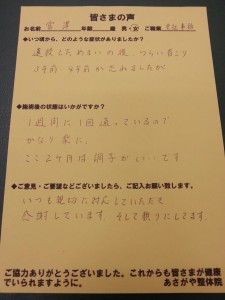 皆さまの声
お名前 宮澤 年齢 歳 男・女 ご職業
◆いつ頃から、どのような症状がありましたか?
退院しためまいの後、つらい首こり
3年前 4年前か忘れましたが
◆施術後の状態はいかがですか?
1週間に1回通っているので
かなり楽に。
ここ2ヶ月は調子がいいです
◆ご意見・ご要望などございましたら、ご記入お願い致します。
いつも親切に対応していただき
感謝しています。そして頼りにしてます。
ご協力ありがとうございました。これからも皆さまが健康
でいられますように。 あさがや整体院